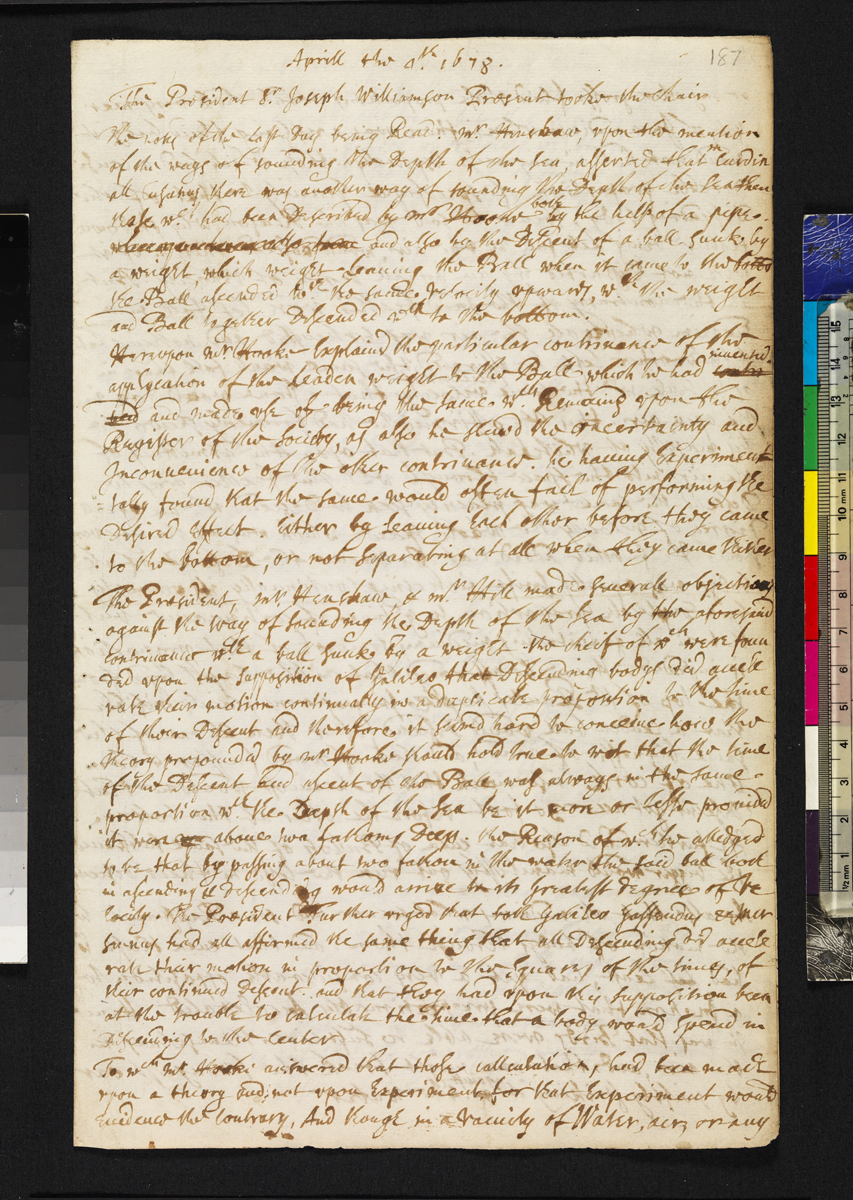 187
Aprill the 4th. 1678.
The President Sr. Joseph Williamson Present tooke the chair
the notes of the last Day being Read: mr. Henshaw, upon the mention
of the ways of sounding the Depth of the sea, asserted that in
all there was another way of sounding the Depth of the sea then
those wch. had been Described by mr Hooke both by the help of a pipe.
and also by the Descent of a ball sunk by
a weight, which weight Leaving the Ball when it came to the botto
the Ball ascended wth the same velocity upwards, wth. the weight
and Ball together Descended wth to the bottom.
Hereupon Mr Hooke Explaind the particular contrivance of the
applycation of the Leaden weight to the Ball which he had invented
had and made use of being the same wth. Remaing upon the
Register of the Society, as also he shewd the uncertainty and
Inconvenience of the other contrivance. he having Experimen
tally found that the same would often fail of performing the
desired effect. Either by Leaving Each other before they came
to the bottom, or not separating at all when they came thither
The President, mr Henshaw, & mr. Hill made severall objections
against the way of sounding the Depth of the sea by the aforesaid
contrivance wth a ball sunk by a weight the cheif of wch were foun
ded upon the supposition of Galileo that Descending bodys did accele
rate their motion continually in a Duplicate proportion to the time
of their Descent and therefore it seemd hard to conceive how the
theory propounded by mr Hooke should hold true to wit that the time
of the Descent and ascent of the Ball was always in the same
proportion wth the Depth of the sea be it more or lesse provided
it were above two fathoms Deep. the Reason of wch. he alledged
to be that by passing about two fathom in the water the said ball both
in ascending & descending would arrive to its Greatest degree of Ve
locity. The President Further urged that both Galileo Gassendus & mer
sennus had all affirmed the same thing that all Descending did accele
rate their motion in proportion to the squares of the times, of
their continued descent. and that they had upon this supposition been
at the trouble to calculate the time that a body would spend in
Descending to the Center
To wch mr. Hooke answered that those calculations, had been made
upon a theory and not upon Experiment, for that Experiment would
Evidence the Contrary, And though in a Vacuity of Water, aer, or any